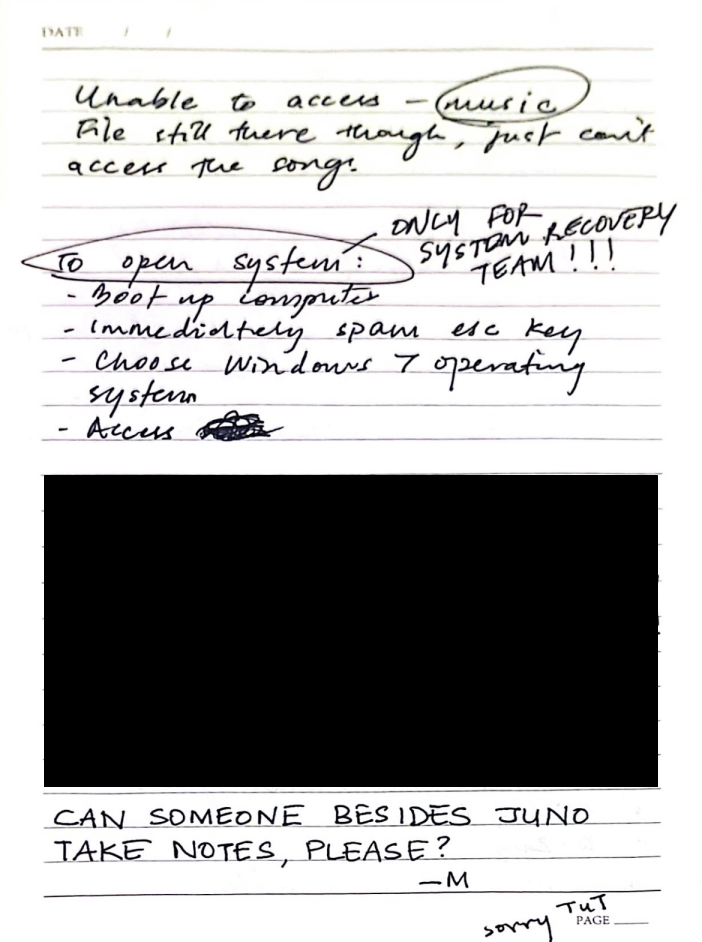 DATE / /
Unable to access – music
File still there though, just can't
access the songs.
ONLY FOR
SYSTEM RECOVERY
TEAM!!!
To open system:
- Boot up computer
- Immediately spam esc key
- Choose Windows 7 operating
system
- Access
CAN SOMEONE BESIDES JUNO
TAKE NOTES, PLEASE?
—M
sorry TUT
PAGE